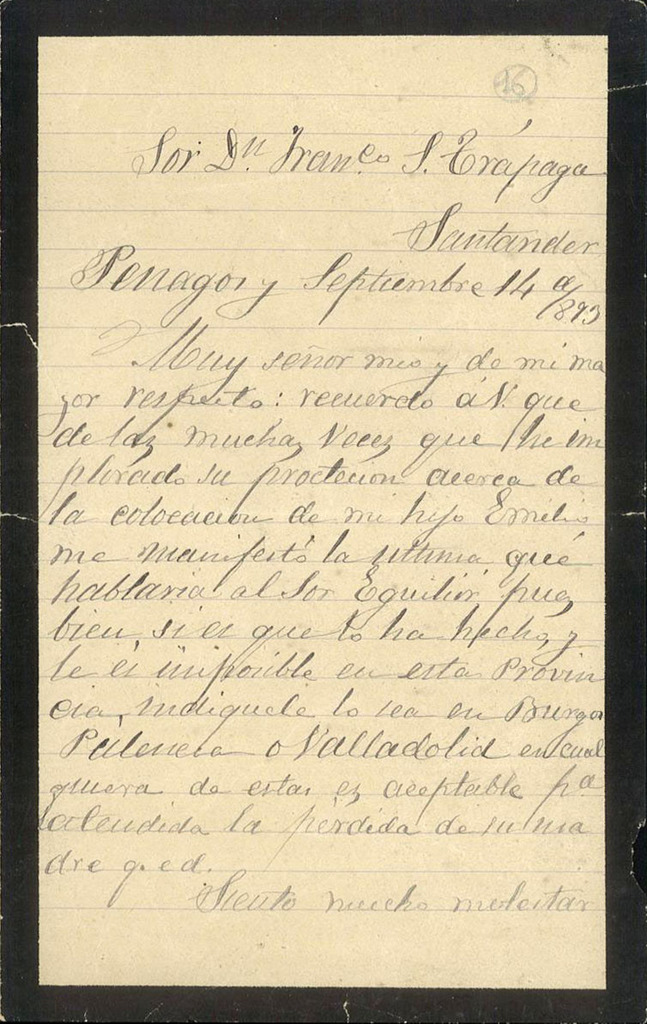 16
Sor Dn Franco S. Trápaga
Santander
Penagos y Septiembre 14 de/893
Muy señor mio y de mi ma
yor respeto: recuerdo á V. que
de las muchas veces que he im
plorado su proctecion acerca de
la colocacion de mi hijo Emilio
me manifestó la ultima que
hablaria al Sor Eguilior pues
bien, si es que lo ha hecho, y
le es imposible en esta Provin
cia, indiquele lo sea en Burgos
Palencia o Valladolid en cual
quiera de estas es aceptable pa
atendida la pérdida de su ma
dre q.e.d.
Siento mucho molestar